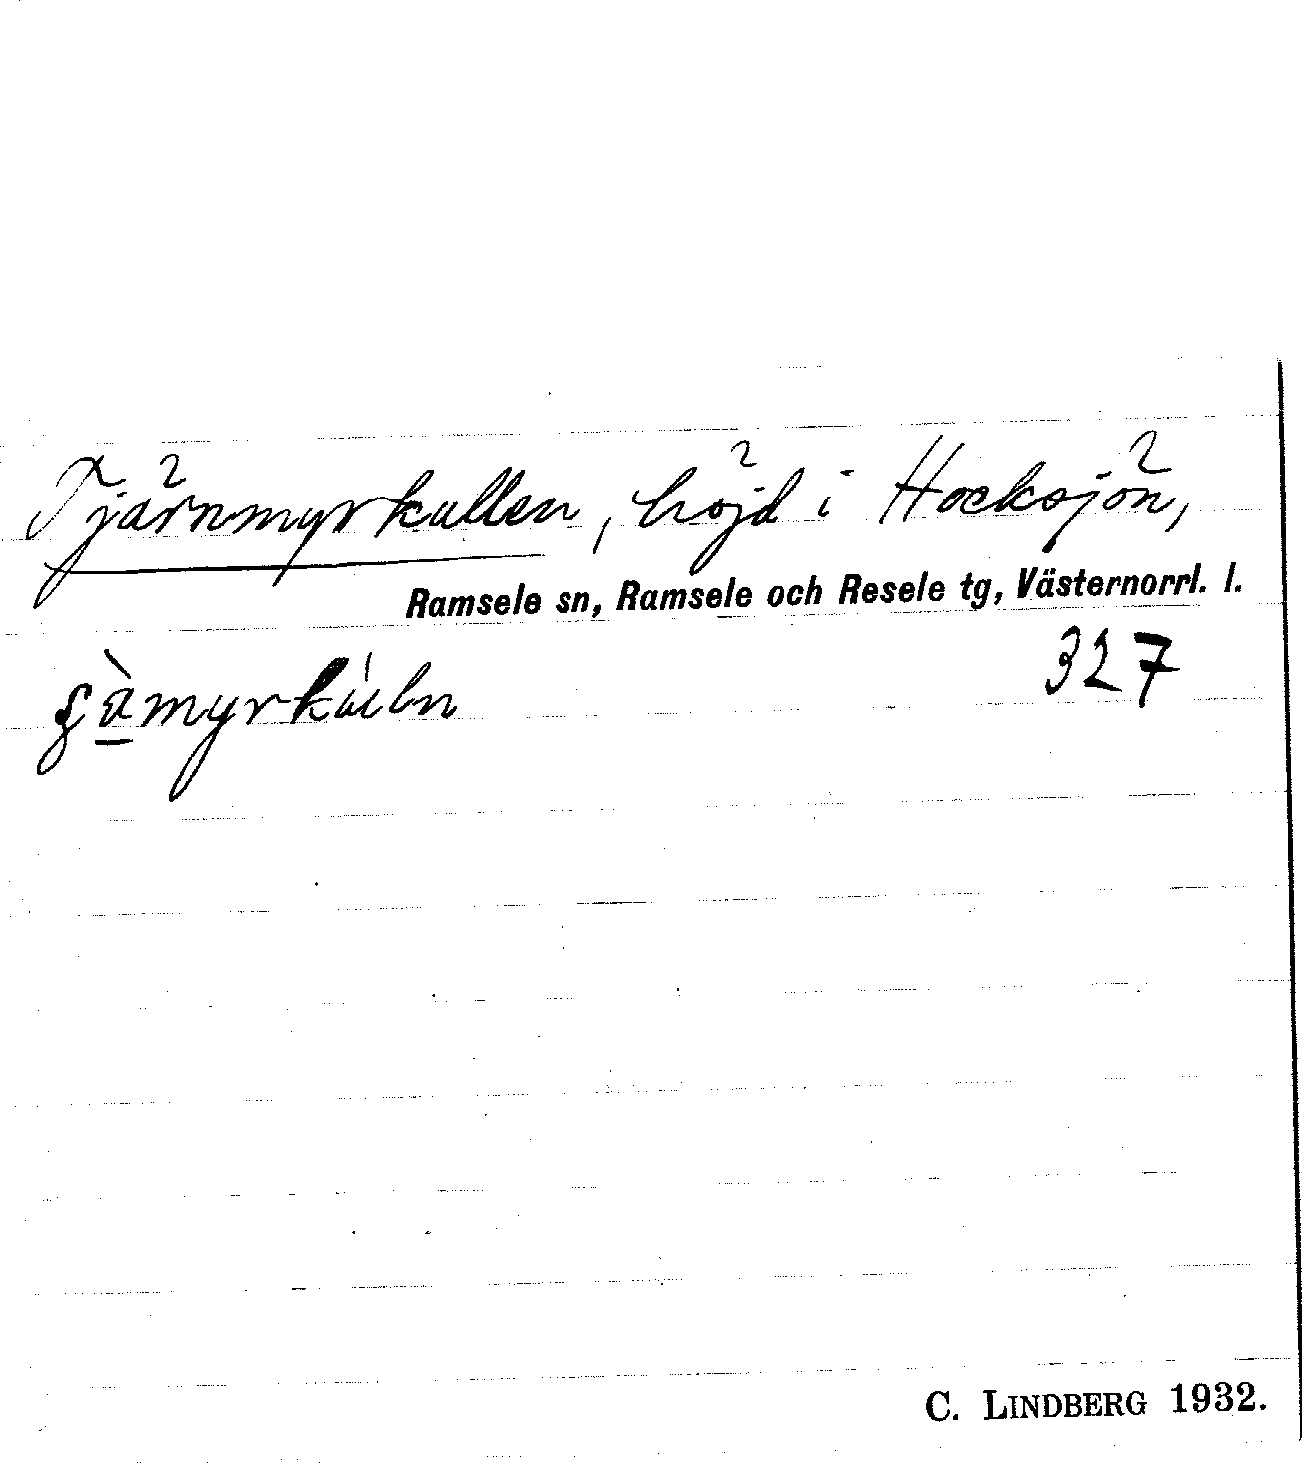 Tjärnmyrkullen, höjd i Hocksjön,
Ramsele sn, Ramsele och Resele tg, Västernorrl. l.
327
C. LINDBERG 1932.